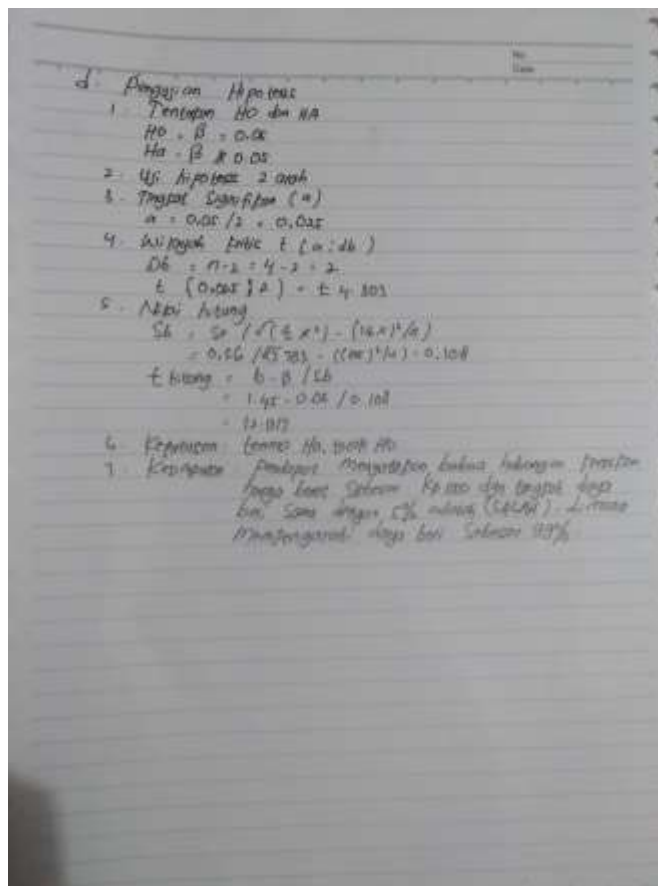 No.
Date
d. Pengujian Hipotesis
1. Tentapan HO dan HA
HO = β = 0.05
Ha = β ≠ 0.05
2. Uji hipotesis 2 arah
3. Tingkat Signifikan (α)
α = 0.05 / 2 = 0.025
4. Wilayah kritis t (α ; db)
Db = n-2 = 4-2 = 2
t (0.025 ; 2) = ± 4.303
5. Nilai hitung
Sb =
- 0.108
t hitung = b - β / Sb
= 1.45 - 0.05 / 0.108
6. Keputusan: terima Ha, tolak Ho
7. Kesimpulan: Pendapat mengatakan bahwa hubungan
harga sebesar dan tingkat daya
beli sama dengan 5% adalah (SALAH).
mempengaruhi daya beli sebesar 99%